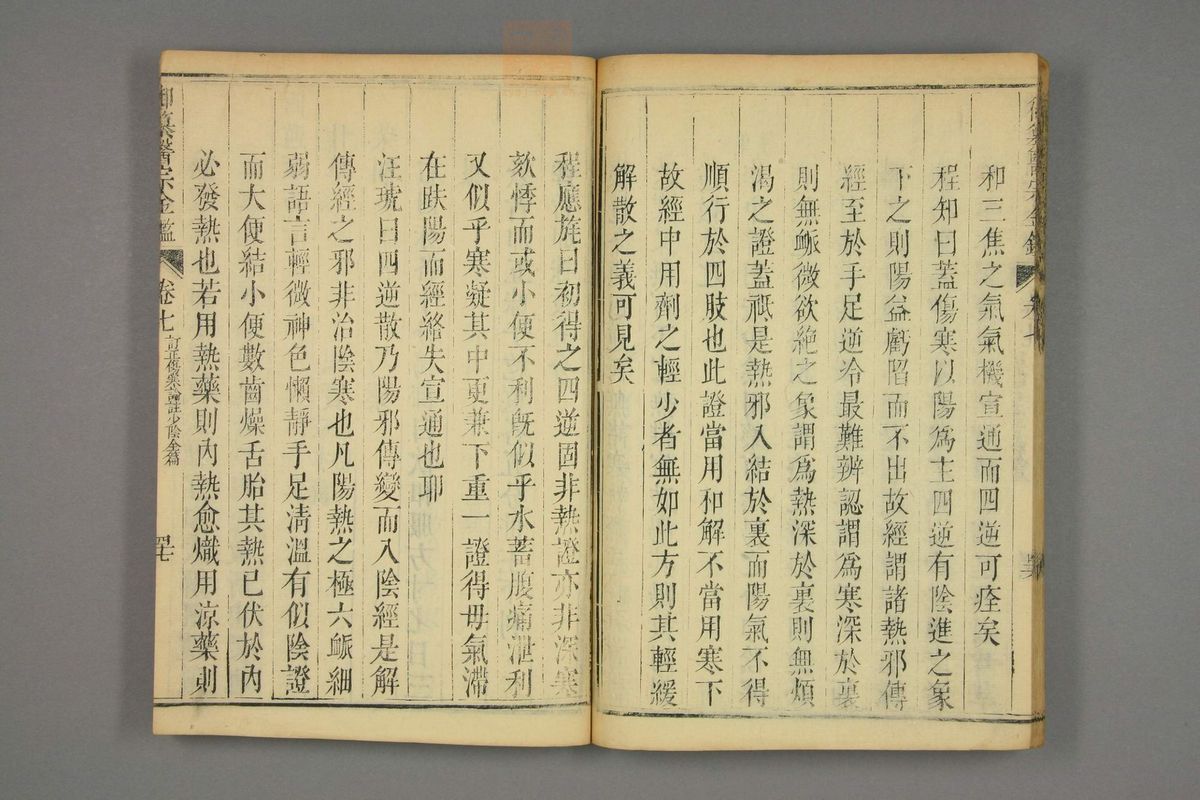 和三焦之氣氣機宣通而四逆可痊矣
程知曰蓋傷寒以陽爲主四逆有陰進之象
下之則陽益虧陷而不出故經謂諸熱邪傳
經至於手足逆冷最難辨認謂爲寒深於裏
則無脈微欲絶之象謂爲熱深於裏則無煩
渴之證蓋祇是熱邪入結於裏而陽氣不得
順行於四肢也此證當用和解不當用寒下
故經中用劑之輕少者無如此方則其輕緩
解散之義可見矣
程應旄曰初得之四逆固非熱證亦非深寒
欬悸而或小便不利旣似乎水蓄腹痛泄利
又似乎寒凝其中更兼下重一證得毋氣滯
在趺陽而經絡失宣通也耶
汪琥曰四逆散乃陽邪傳變而入陰經是解
傳經之邪非治陰寒也凡陽熱之極六脈細
弱語言輕微神色懶靜手足淸溫有似陰證
而大便結小便數齒燥舌胎其熱已伏於內
必發熱也若用熱藥則內熱愈熾用涼藥則
御纂醫宗金鑑 卷七 訂正傷寒論註少陰全篇